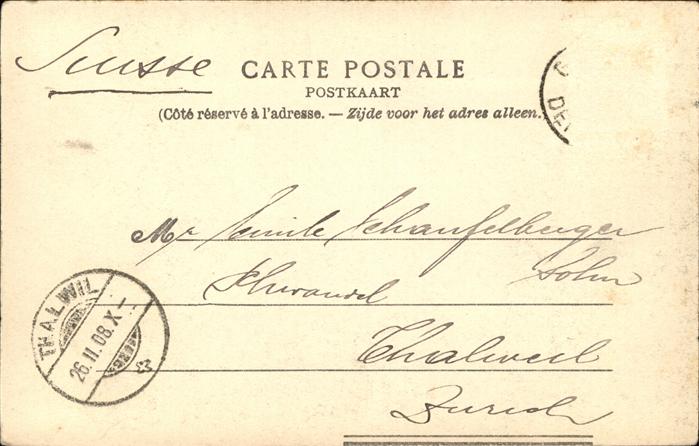 Suisse
CARTE POSTALE
POSTKAART
(Côté réservé à l'adresse. — Zijde voor het adres alleen.)
Mr Emile Schaufelberger
Sohn
Schwandel
Thalweil
Zurich
THALWIL
26.II.08.X—
DE